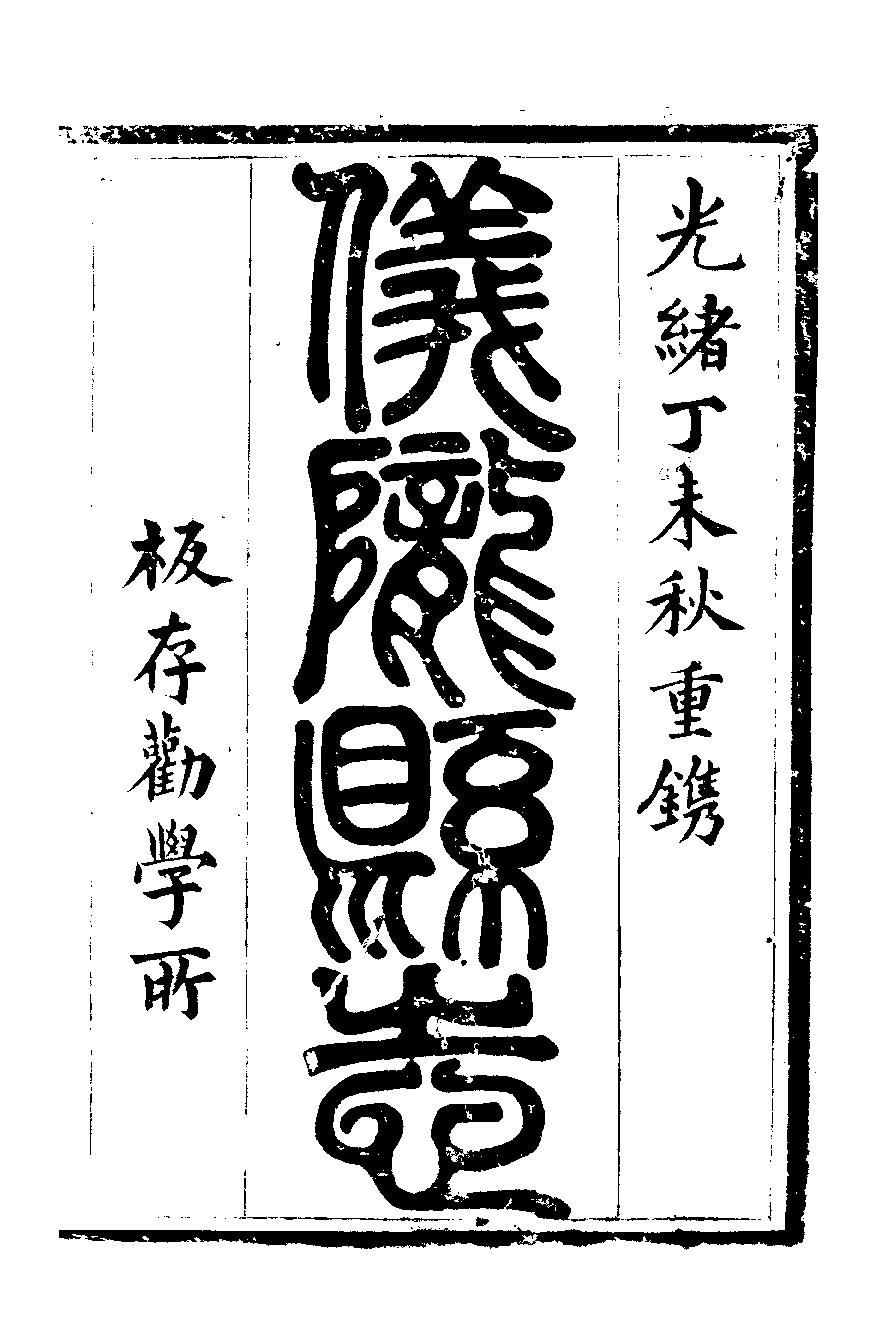 光緒丁未秋重鐫
儀隴縣志
板存勸學所